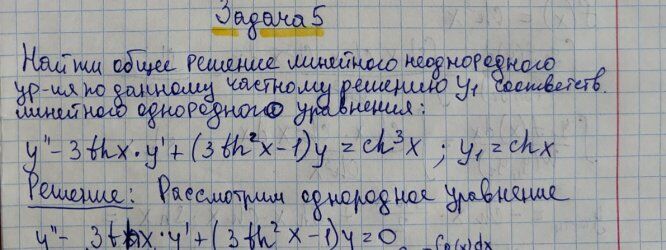 Задача 5
Найти общее решение линейного неоднородного
ур-ия по данному частному решению y₁ соответств.
линейного однородного уравнения:
y" - 3thx·y' + (3th²x-1)y = ch³x ; y₁ = chx
Решение: Рассмотрим однородное уравнение
y" - 3thx·y' + (3th²x-1)y = 0